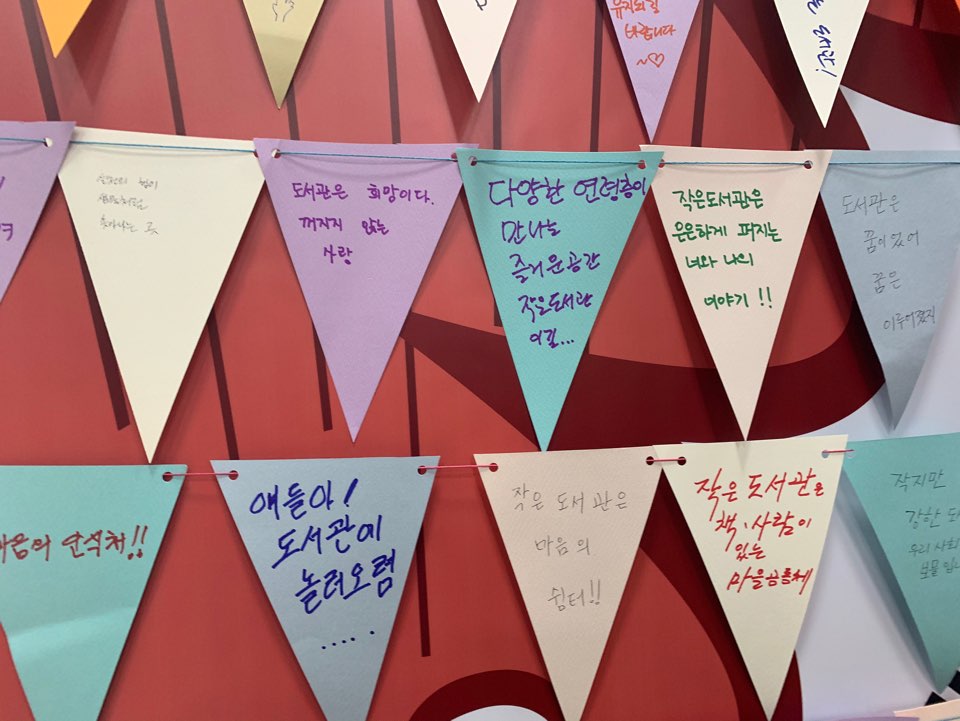 유지되길
바랍니다
~♡
도서관은 희망이다.
꺼지지 않는
사랑
다양한 연령층이
만나는
즐거운공간
작은도서관
이길...
작은도서관은
은은하게 퍼지는
너와 나의
이야기 !!
도서관은
꿈이었어
꿈은
이루어졌지
안식처!!
얘들아!
도서관에
놀러오렴
.....
작은 도서관은
마음의
쉼터!!
작은 도서관은
책, 사람이
있는
마을공동체
작지만
강한
우리 사회
보물